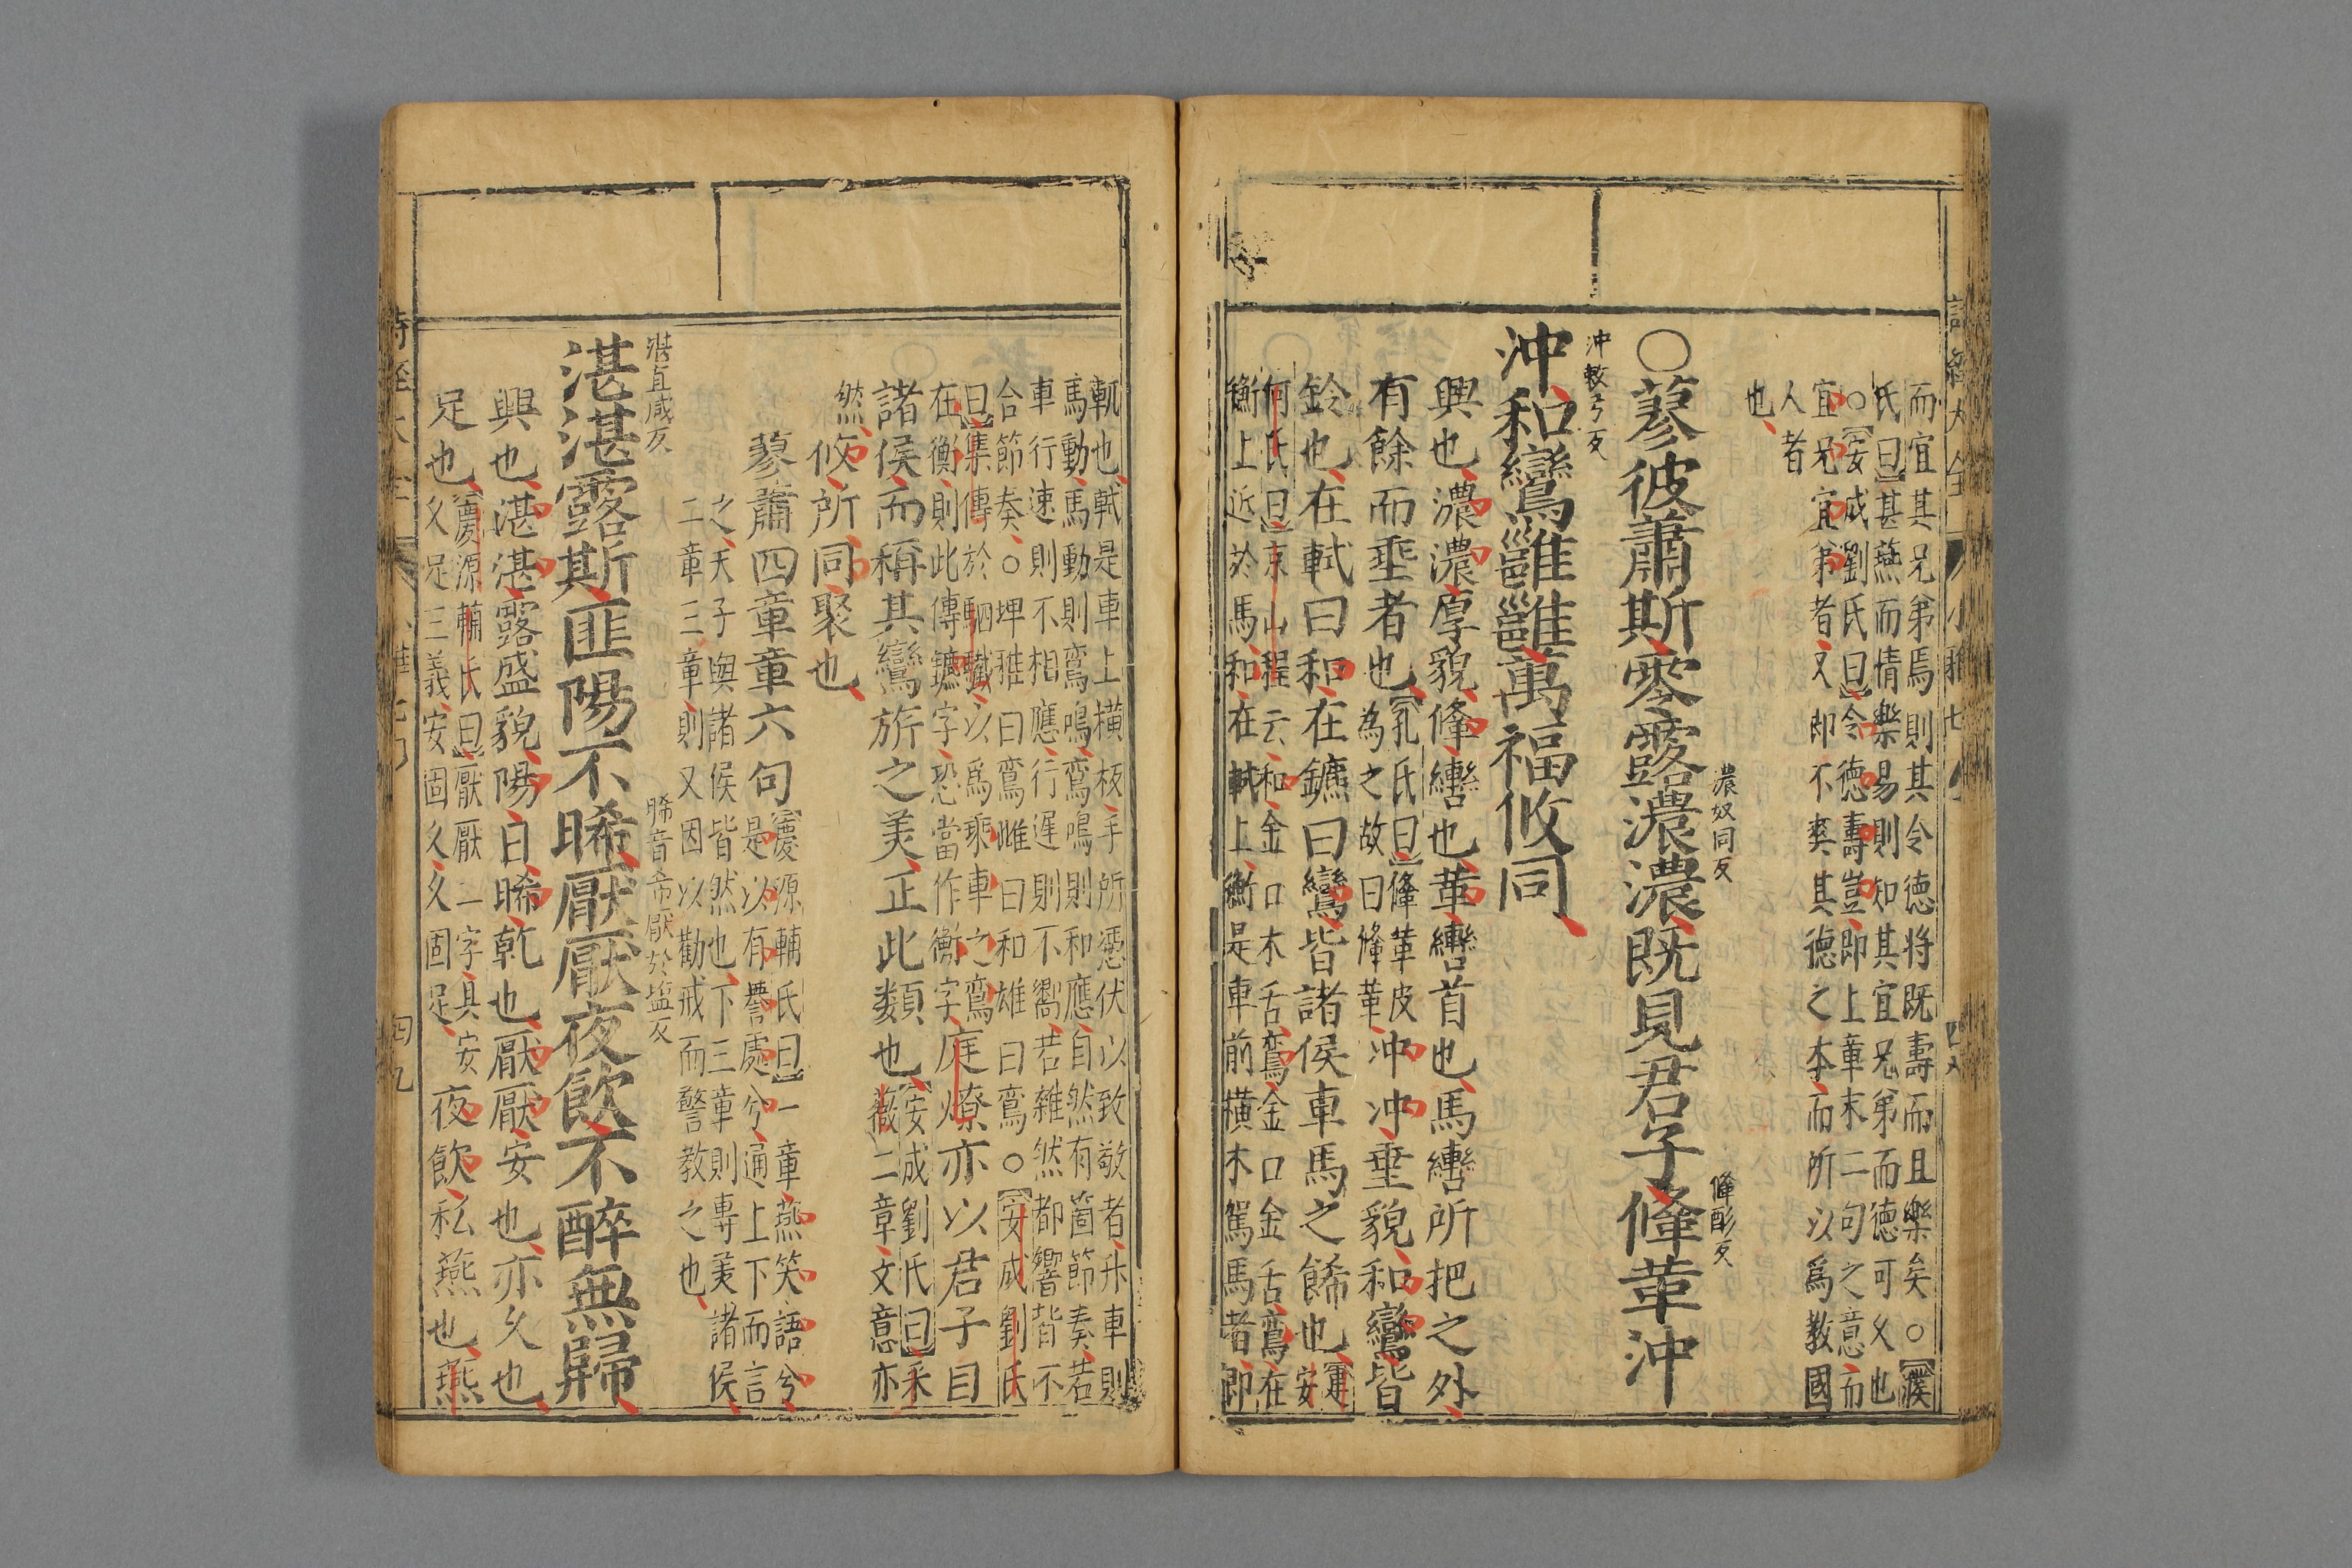 而宜其兄弟焉則其令德将既壽而且樂矣○濮
氏曰甚燕而情樂易則知其宜兄弟而德可久也
○安成劉氏曰令德壽豈即上章末二句之意而
宜兄宜弟者又即不爽其德之本而所以爲教國
人者
也
濃奴同反
鞗彫反
○蓼彼蕭斯零露濃濃既見君子鞗革沖
沖敕弓反
沖和鸞雝雝萬福攸同
興也濃濃厚貌鞗轡也革轡首也馬轡所把之外
有餘而垂者也孔氏曰鞗革皮
為之故曰鞗革
沖沖垂貌和鸞皆
鈴也在軾曰和在鑣曰鸞皆諸侯車馬之餙也
何氏曰京山程云和金口木舌鸞金口金舌鸞在
衡上近於馬和在軾上衡是車前橫木駕馬者即
軏也軾是車上橫板手所憑伏以致敬者升車則
馬動馬動則鸞鳴鸞鳴則和應自然有箇節奏若
車行速則不相應行遲則不響若雜然都響皆不
合節奏○埤雅曰鸞雌曰和雄曰鸞○安成劉氏
曰集傳於駟驖以爲乘車之鸞
在衡則此傳鑣字恐當作衡字
庭燎亦以君子目
諸侯而稱其鸞旂之美正此類也
安成劉氏曰采
薇二章文意亦
然
攸所同聚也
蓼蕭四章章六句
慶源輔氏曰一章燕笑語兮
是以有譽處兮通上下而言
之天子與諸侯皆然也下三章則專美諸侯
二章三章則又因以勸戒而警教之也
湛直咸反
晞音希厭於塩反
湛湛露斯匪陽不晞厭厭夜飲不醉無歸
興也湛湛露盛貌陽日晞乾也厭厭安也亦久也
足也
慶源輔氏曰厭厭二字具安
久足三義安固久久固足
夜飲私燕也燕